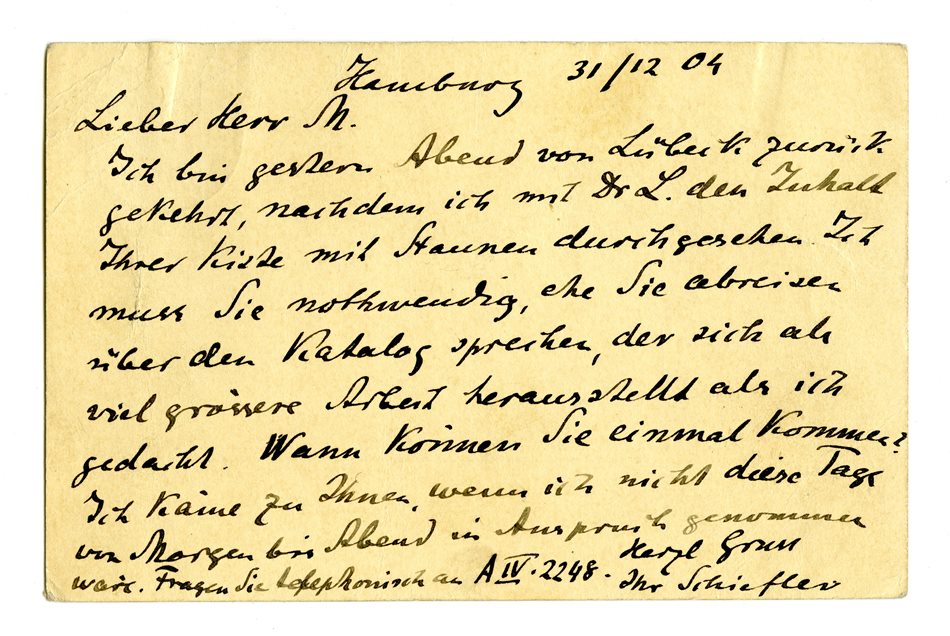 Hamburg 31/12 04
Lieber Herr M.
Ich bin gestern Abend von Lübeck zurück
gekehrt, nachdem ich mit Dr L. den Inhalt
Ihrer Kiste mit Staunen durchgesehen. Ich
muss Sie nothwendig, ehe Sie abreisen
über den Katalog sprechen, der sich als
viel grössere Arbeit herausstellt als ich
gedacht. Wann können Sie einmal kommen?
Ich käme zu Ihnen, wenn ich nicht diese Tage
von Morgen bis Abend in Anspruch genommen
wäre. Fragen Sie telephonisch an A IV. 2248.
Herzl Gruss
Ihr Schiefler